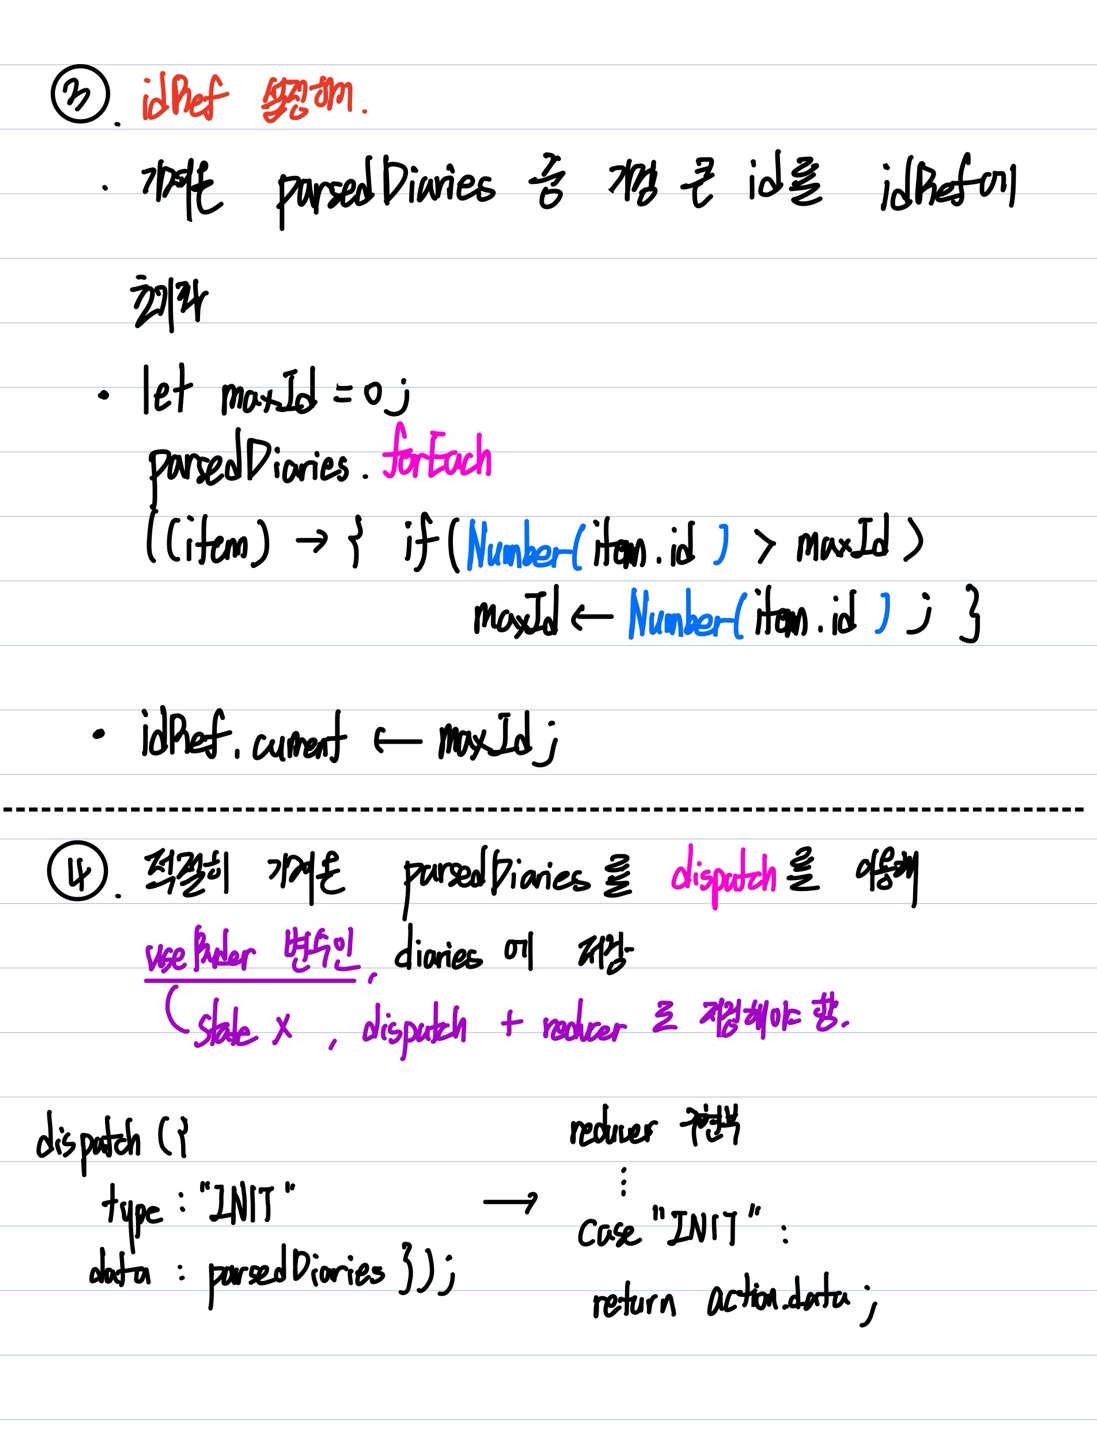 ③. idRef 설정하기.
· 가져온 parsedDiaries 중 가장 큰 id를 idRef에
초기화
· let maxId = 0;
parsedDiaries. forEach
((item) → { if( Number(item.id ) > maxId )
maxId ← Number(item.id ) ; }
· idRef.current ← maxId;
④. 적절히 가져온 parsedDiaries를 dispatch를 이용해
변수인, diaries에 저장
state x , dispatch + reducer 로 저장해야 함.
dispatch ({
type : "INIT"
data : parsedDiaries });
→
reducer 구현부
⋮
case "INIT" :
return action.data ;